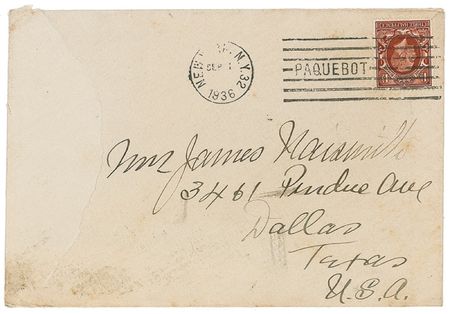 NEW YORK, N.Y. 32
SEP 1
1936
PAQUEBOT
Mrs James Naismith
3461 Purdue Ave
Dallas
Texas
U.S.A.